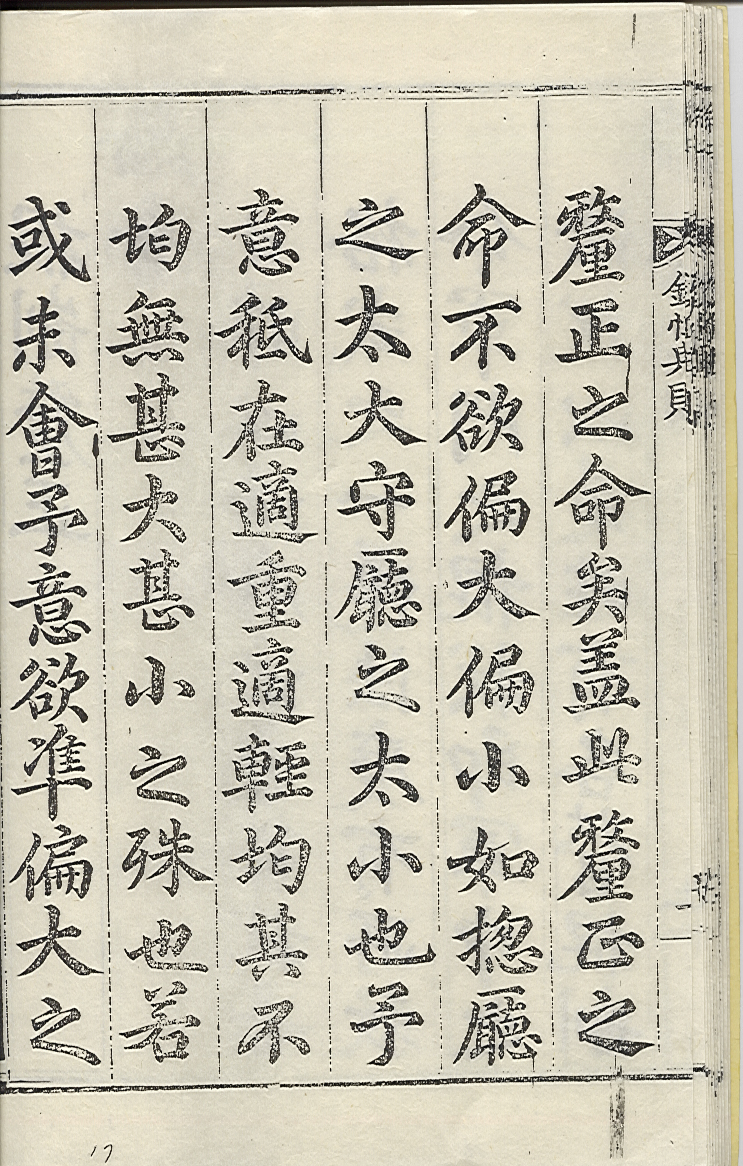 釐正之命矣盖此釐正之
命不欲偏大偏小如摠廳
之太大守廳之太小也予
意秪在適重適輕均其不
均無甚大甚小之殊也若
或未會予意欲準偏大之
二
17